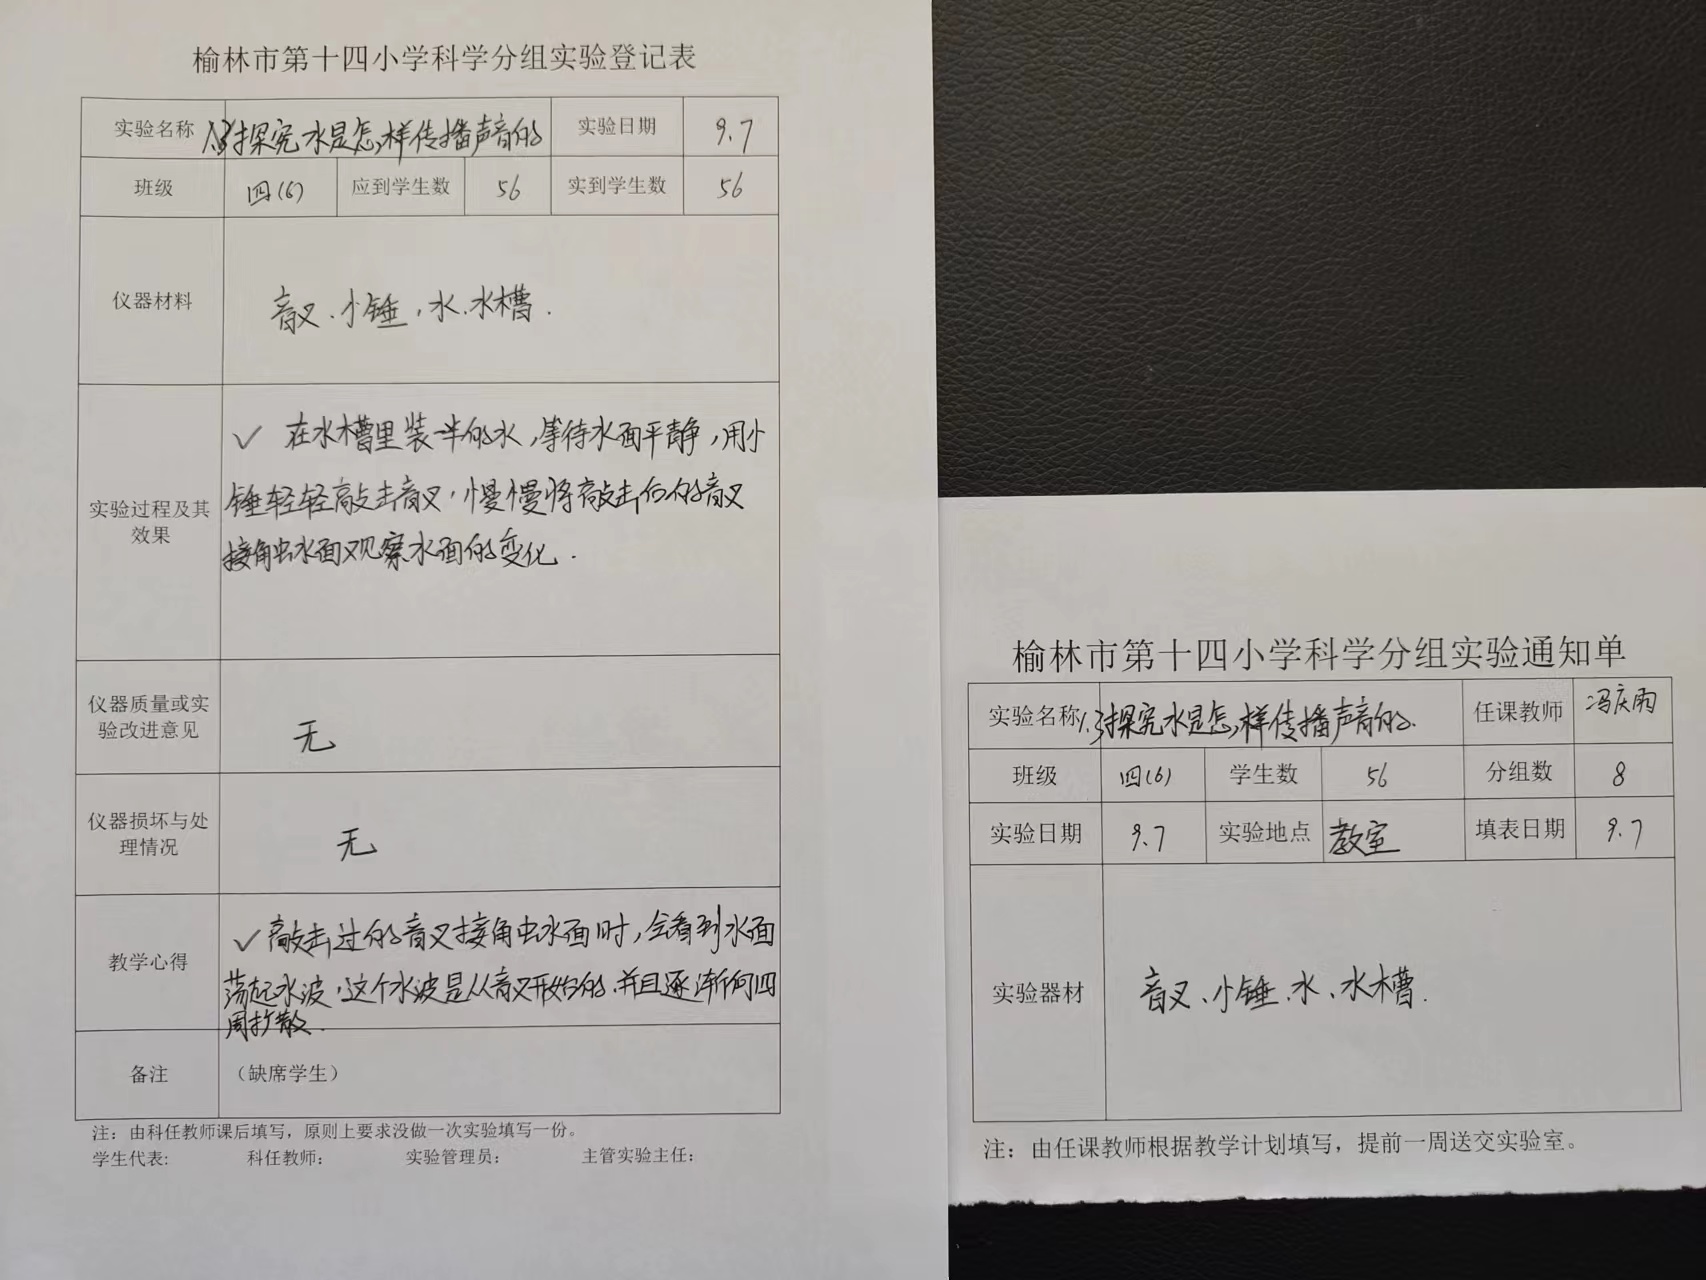 榆林市第十四小学科学分组实验登记表
实验名称 1.3探究水是怎样传播声音的 实验日期 9.7
班级 四(6) 应到学生数 56 实到学生数 56
仪器材料 音叉、小锤、水、水槽.
✓ 在水槽里装一半的水,等待水面平静,用小
锤轻轻敲击音叉,慢慢将敲击后的音叉
接触水面观察水面的变化.
实验过程及其
效果
仪器质量或实
验改进意见
无
仪器损坏与处
理情况
无
教学心得
✓敲击过的音叉接触水面时,会看到水面
荡起水波,这个水波是从音叉开始的,并且逐渐向四
周扩散.
备注 (缺席学生)
注:由科任教师课后填写,原则上要求没做一次实验填写一份。
学生代表: 科任教师: 实验管理员: 主管实验主任:
榆林市第十四小学科学分组实验通知单
实验名称 1.3探究水是怎样传播声音的. 任课教师 冯庆雨
班级 四(6) 学生数 56 分组数 8
实验日期 9.7 实验地点 教室 填表日期 9.7
实验器材 音叉、小锤、水、水槽.
注:由任课教师根据教学计划填写,提前一周送交实验室。